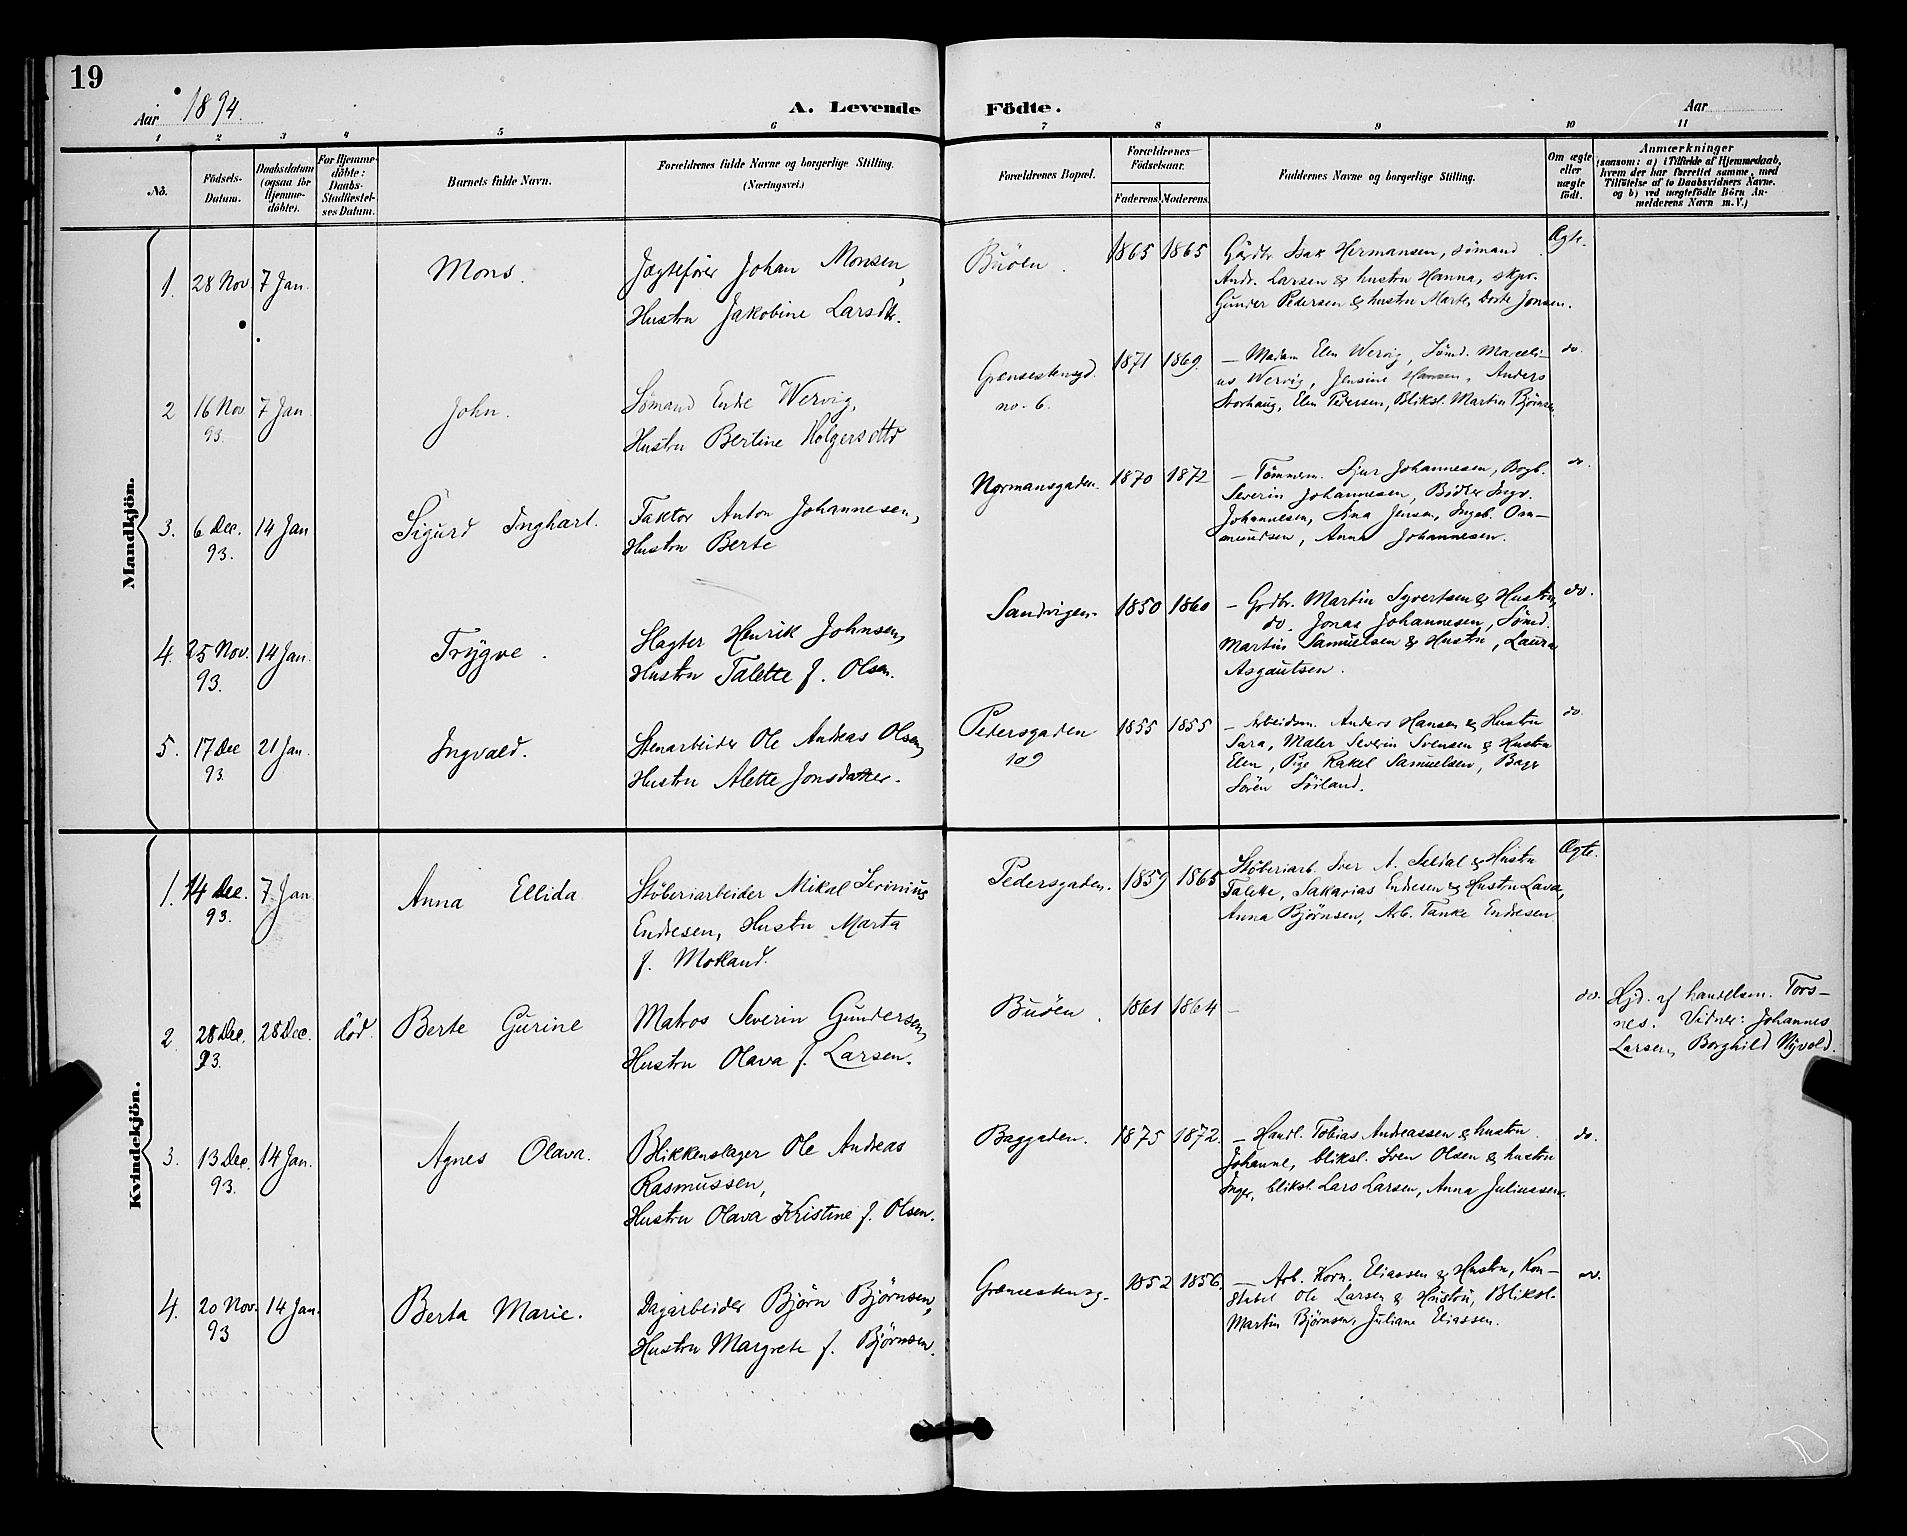 19
Aar 1894.
A. Levende Födte.
Aar
1 2 3 4 5 6 7 8 9 10 11
No.
Födsels-Datum.
Daabsdatum (ogsaa for Hjemme-döbte).
For Hjemme-döbte: Daabs-Stadfæstel-ses Datum.
Barnets fulde Navn.
Forældrenes fulde Navne og borgerlige Stilling. (Næringsvei.)
Forældrenes Bopæl.
Forældrenes Födselsaar.
Faderens. Moderens.
Faddernes Navne og borgerlige Stilling.
Om ægte eller uægte født.
Anmærkninger
(saasom: a) i Tilfælde af Hjemmedaab,
hvem der har forrettet samme, med
Tilföielse af to Daabsvidners Navne.
og b) ved uægtefödte Börn An-
melderens Navn m. V.)
Mandkjön.
1. 28 Nov 7 Jan. Mons.
Jægtefører Johan Monsen,
Hustru Jakobine Larsdtr.
Buöen. 1865 1865
Gårdbr. Isak Hermansen, sømand
Andr. Larsen & hustru Hanna, skpr.
Gunder Pedersen & hustru Marte, Dorte Jonsen.
Ægte.
2 16 Nov 93. 7 Jan. John.
Sømand Enke Wervig,
Hustru Bertine Holgersdttr
Grænsestensgd. no. 6. 1871 1869.
— Madam Elen Wervig, Sömd. Marceli-
us Wervig, Jensine Hansen, Anders
Storhaug, Elen Pedersen, Bliksl. Martin Björnsen
do.
3. 6 Dec. 93. 14 Jan Sigurd Inghart.
Faktor Anton Johannesen,
Hustru Berte
Normansgaden. 1870 1872
— Tömmerm. Sjur Johannesen, Bogb.
Severin Johannesen, Bödker Ingv.
Johannesen, Sina Jensen, Ingeb. Om-
mundsen, Anna Johannesen.
do.
4. 25 Nov. 93. 14 Jan. Trygve.
Slagter Henrik Johnsen,
Hustru Talette f. Olsen.
Sandvigen. 1850 1860
— Grdbr. Martin Syvertsen & Hustru,
do. Jonas Johannesen, Sömd.
Martin Samuelsen & Hustru, Laura
Asgautsen.
do.
5. 17 Dec 93. 21 Jan. Ingvald.
Stenarbeider Ole Andreas Olsen,
Hustru Alette Jonsdatter.
Pedersgaden 109 1855 1855
— Arbeidsm. Anders Hansen & Hustru
Sara, Maler Severin Svensen & Hustru
Elen, Pige Rakel Samuelsen, Bager
Sören Sörland.
do.
Kvindekjön.
1. 14 Dec. 93. 7 Jan Anna Ellida
Stöberiarbeider Mikal Serinius
Endresen, Hustru Marta
f. Motland.
Pedersgaden. 1859 1865
Stöberiarb. Iver A. Seldal & Hustru
Talette, Sakarias Endresen & Hustru Lava,
Anna Björnsen, Arb. Tanke Endresen
Ægte.
2. 28 Dec. 93. 28 Dec. död. Berte Gurine
Matros Severin Gundersen,
Hustru Olava f. Larsen.
Buöen. 1861 1864 —
do.
Hjd. af handelsm. Tors-
nes. Vidner: Johannes
Larsen, Borghild Nyvold.
3. 13 Dec. 93. 14 Jan. Agnes Olava.
Blikkenslager Ole Andreas
Rasmussen,
Hustru Olava Kristine f. Olsen.
Baggaden. 1875 1872.
— Handl. Tobias Andreassen & hustru
Johanne, bliksl. Sven Olsen & hustru
Inger, bliksl. Lars Larsen, Anna Juliussen.
do.
4. 20 Nov. 93 14 Jan. Berta Marie.
Dagarbeider Björn Björnsen,
Hustru Margrete f. Björnsen.
Grænsestensg. 1852 1856.
— Arb. Korn. Eliassen & Hustru, Kon-
stabel Ole Larsen & Hustru, Bliksl.
Martin Björnsen, Juliane Eliassen.
do.